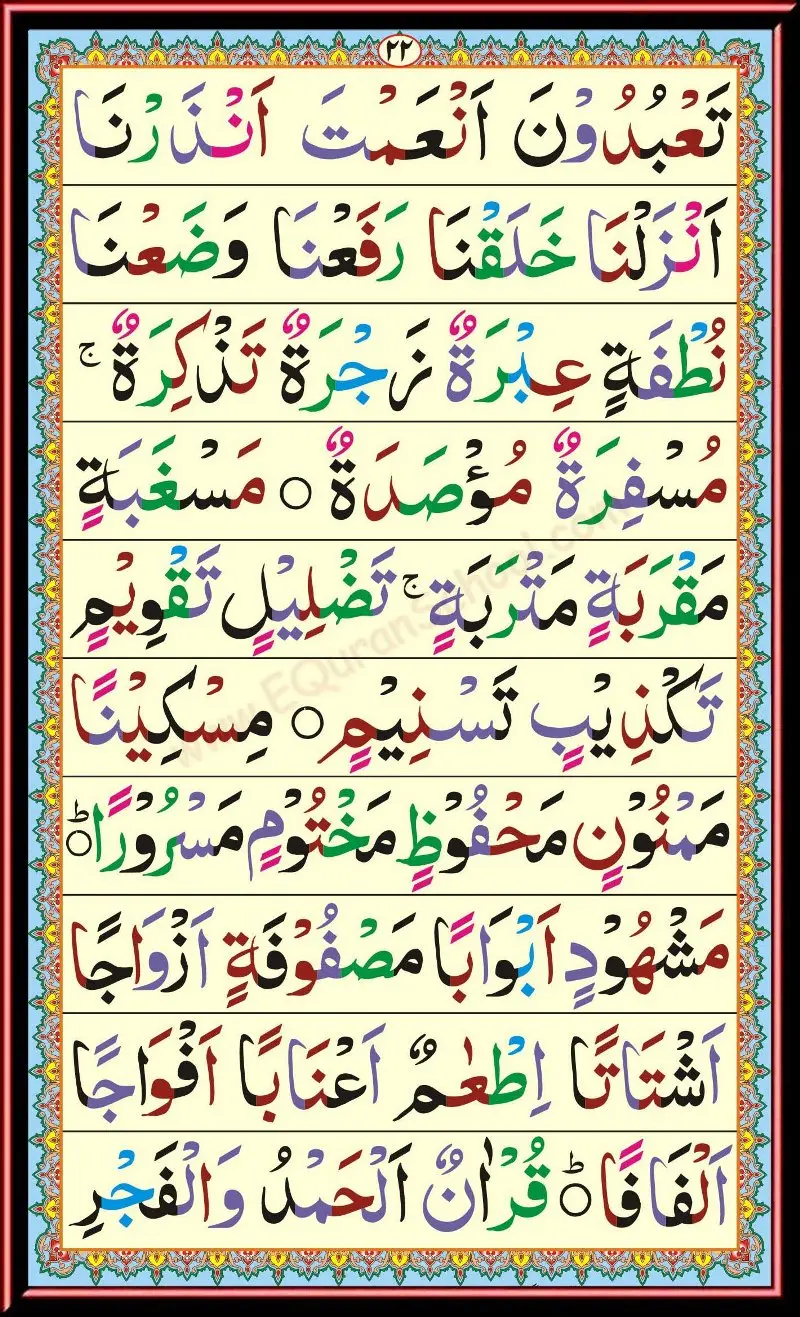 ٢٢
تَعْبُدُوْنَ اَنْعَمْتَ اَنْذَرْنَا
اَنْزَلْنَا خَلَقْنَا رَفَعْنَا وَضَعْنَا
نُطْفَةٍ عِبْرَةٌ زَجْرَةٌ تَذْكِرَةٌ ۚ
مُسْفِرَةٌ مُؤْصَدَةٌ ○ مَسْغَبَةٍ
مَقْرَبَةٍ مَتْرَبَةٍ ۚ تَضْلِيْلٍ تَقْوِيْمٍ
تَكْذِيْبٍ تَسْنِيْمٍ ○ مِسْكِيْنًا
مَمْنُوْنٍ مَحْفُوْظٍ مَخْتُوْمٍ مَسْرُوْرًا ○ؕ
مَشْهُوْدٍ اَبْوَابًا مَصْفُوْفَةٍ اَزْوَاجًا
اَشْتَاتًا اِطْعٰمٌ اَعْنَابًا اَفْوَاجًا
اَلْفَافًا ○ؕ قُرْاٰنٌ اَلْحَمْدُ وَالْفَجْرِ
www.EQuranSchool.com